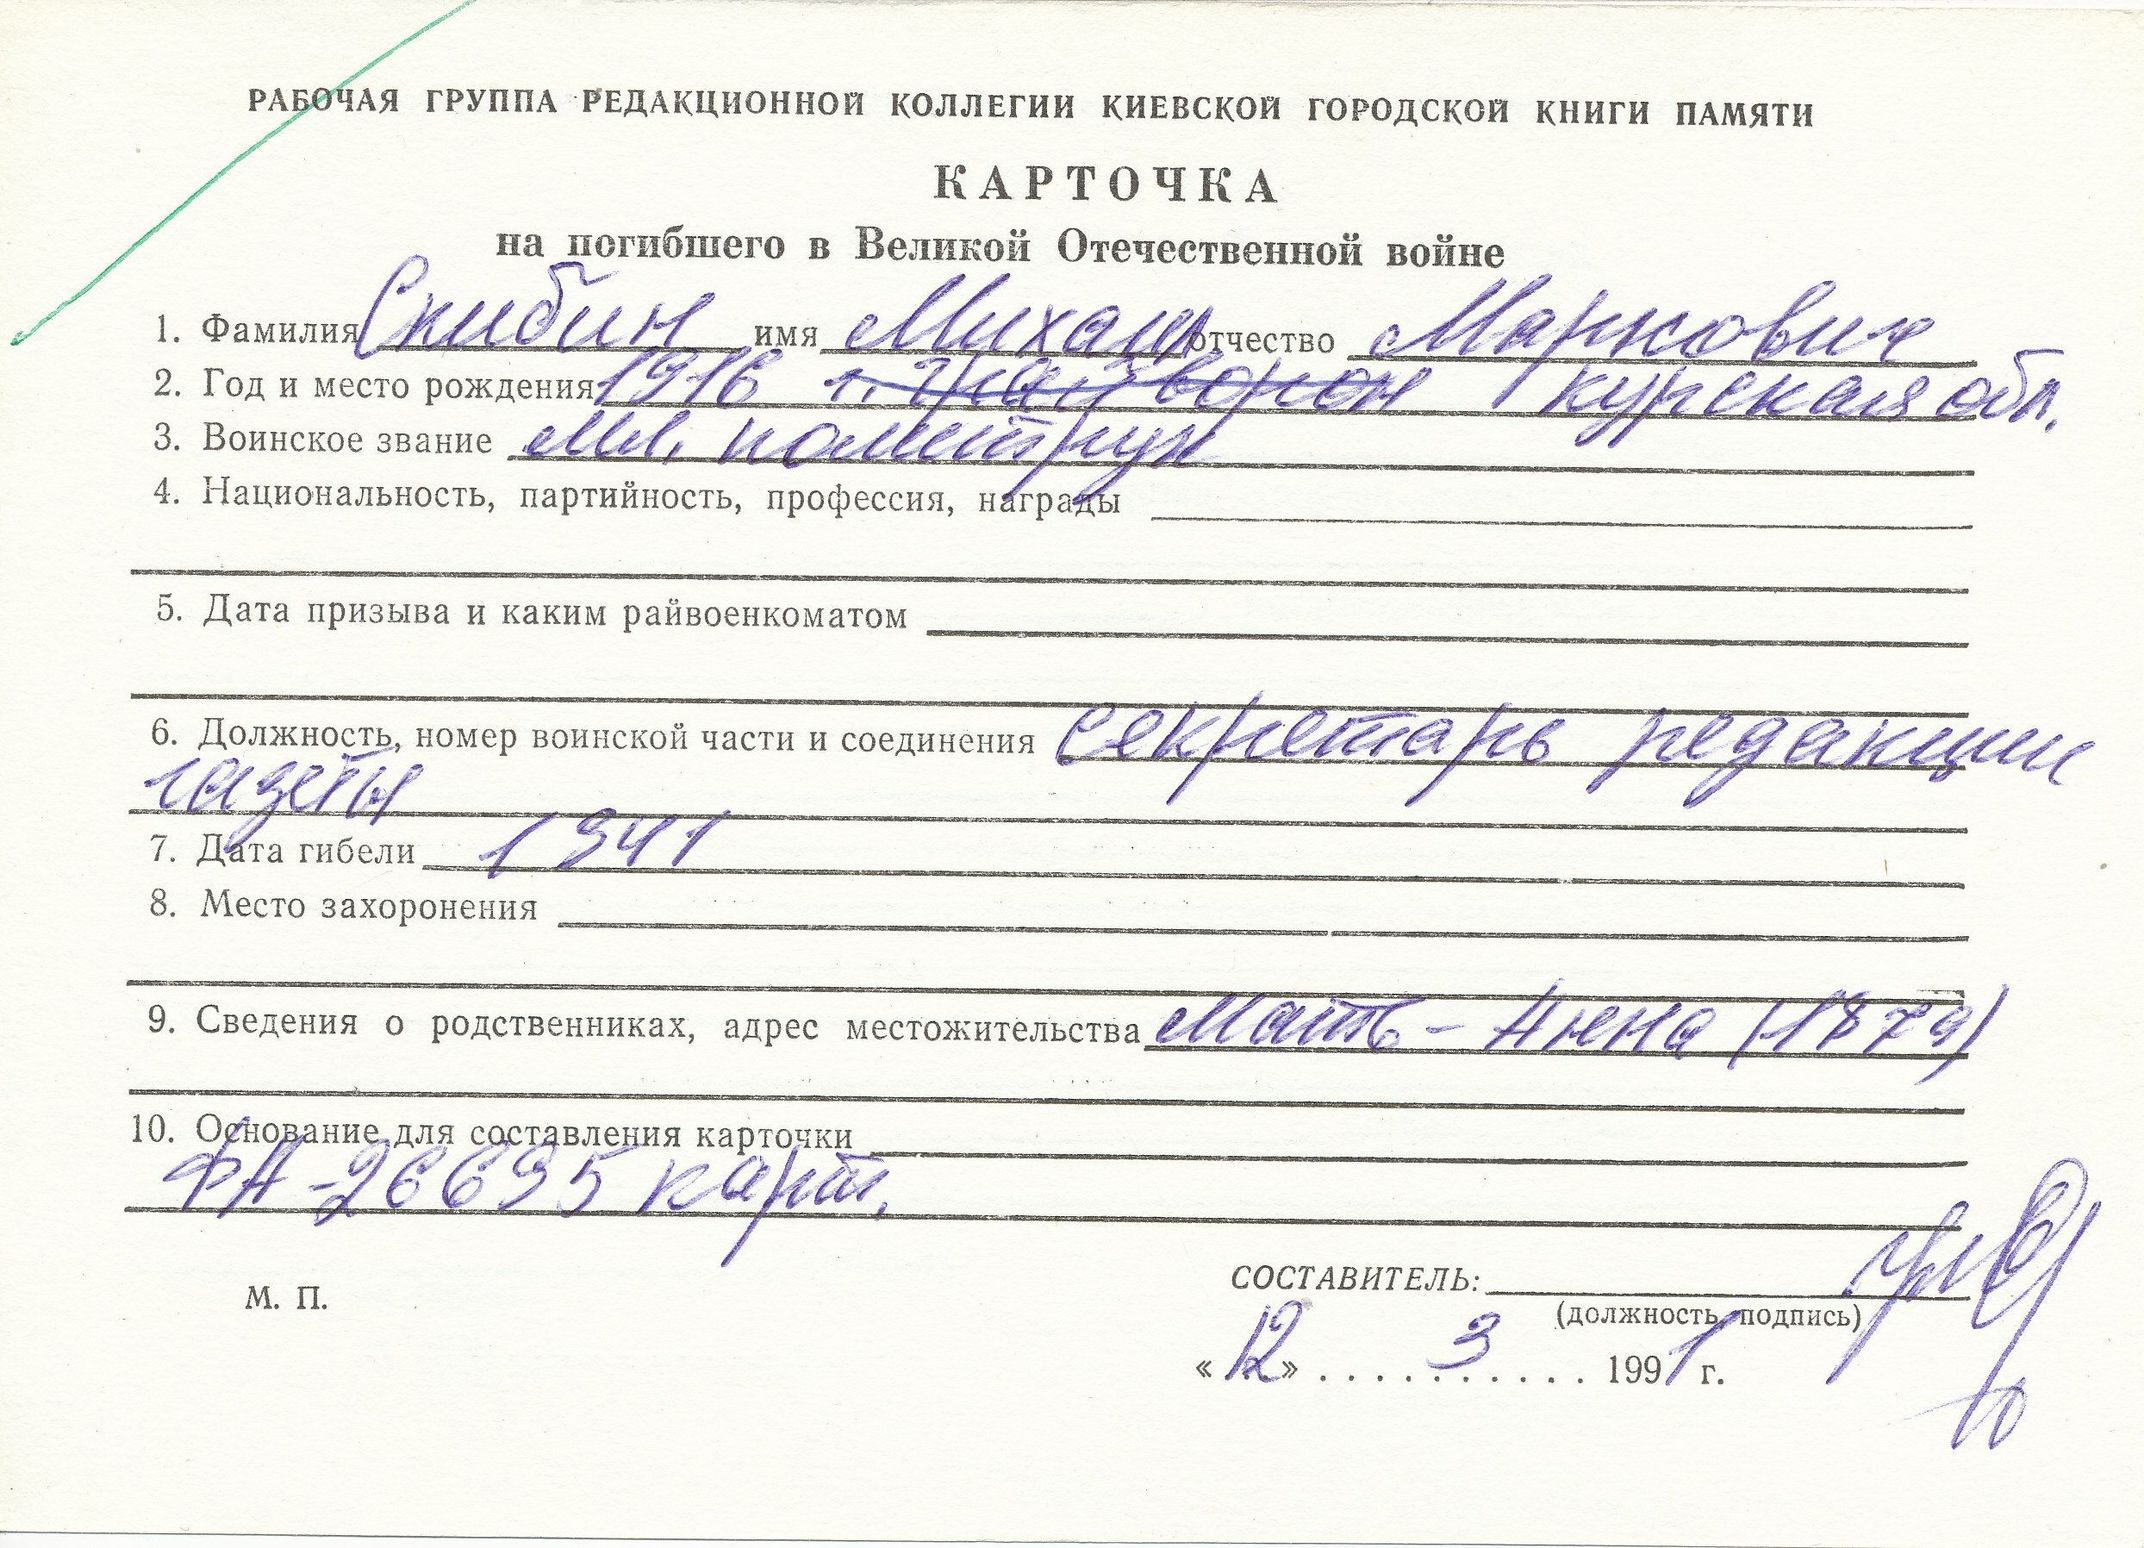 РАБОЧАЯ ГРУППА РЕДАКЦИОННОЙ КОЛЛЕГИИ КИЕВСКОЙ ГОРОДСКОЙ КНИГИ ПАМЯТИ
КАРТОЧКА
на погибшего в Великой Отечественной войне
1. Фамилия Скибин имя Михаил отчество Маркович
2. Год и место рождения 1916 г. Грайворон Курская обл.
3. Воинское звание Мл. политрук
4. Национальность, партийность, профессия, награды
5. Дата призыва и каким райвоенкоматом
6. Должность, номер воинской части и соединения секретарь редакции
газеты
7. Дата гибели 1941
8. Место захоронения
9. Сведения о родственниках, адрес местожительства Мать - Анна (1879)
10. Основание для составления карточки
ФА-26695 карт.
М. П.
СОСТАВИТЕЛЬ:
(должность, подпись)
«12» 3 1991 г.